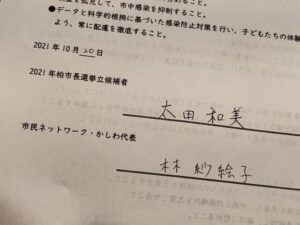 を拡充して、市中感染を抑制すること。
●データと科学的根拠に基づいた感染防止対策を行い、子どもたちの体験
よう、常に配慮を徹底すること。
2021年10月20日
2021年柏市長選挙立候補者
太田和美
市民ネットワーク・かしわ代表
林紗絵子